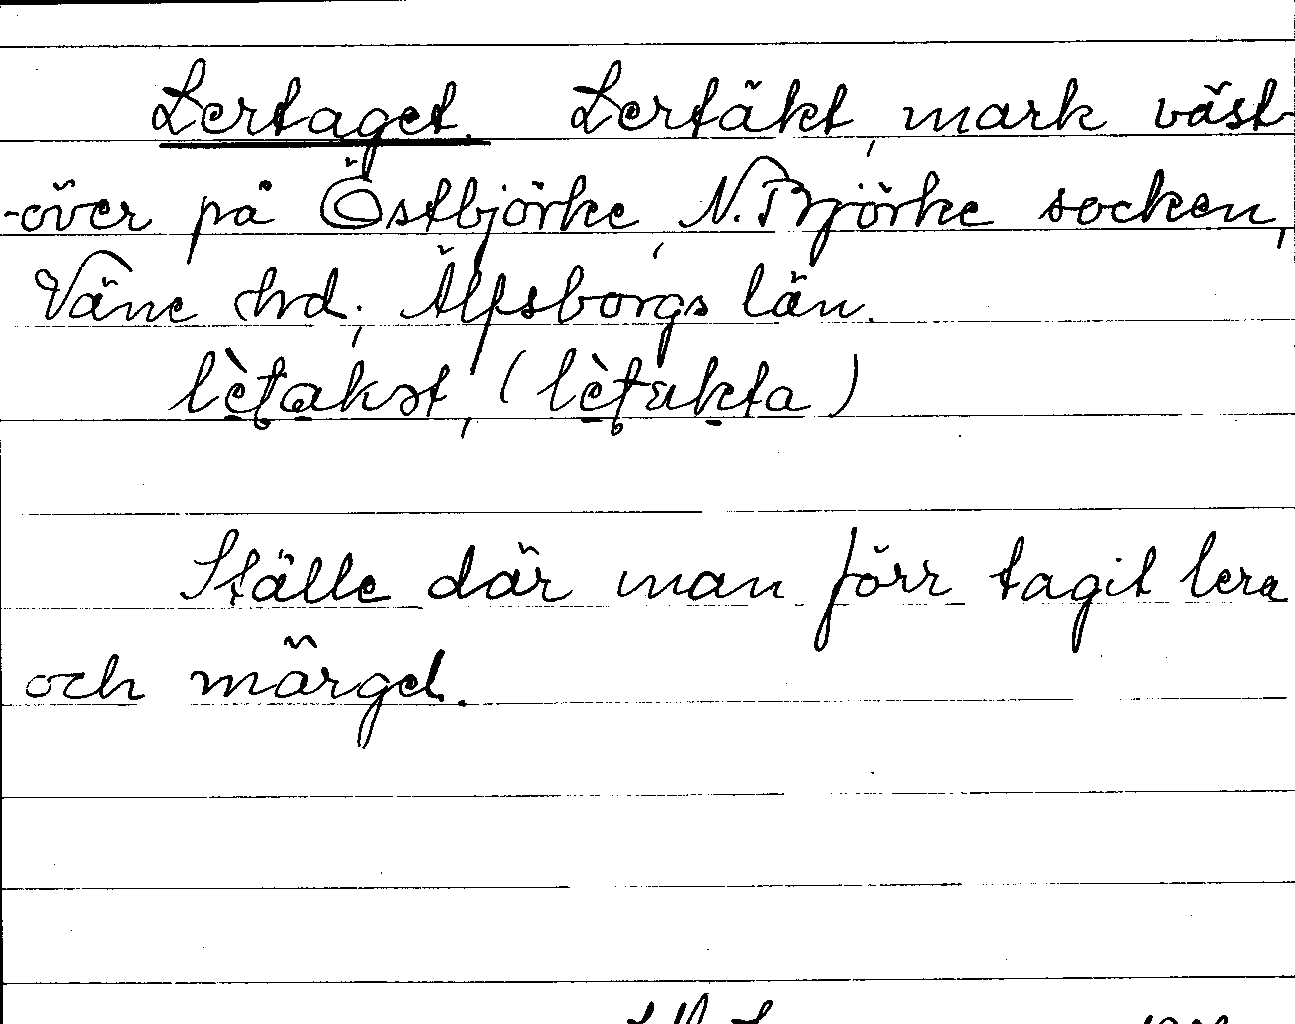 Lertaget. Lertäkt, mark väst-
-över på Östbjörke, N. Björke socken,
Väne hrd; Älfsborgs län.
lètakət, (lètakta)
Ställe där man förr tagit lera
och märgel.